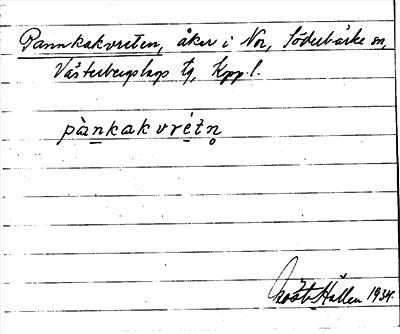 Pannkakvreten, åker i Nor, Söderbärke sn,
Västerbergslags tg, Kpp. l.
pànkakvrétn̥
Hållen 1934.